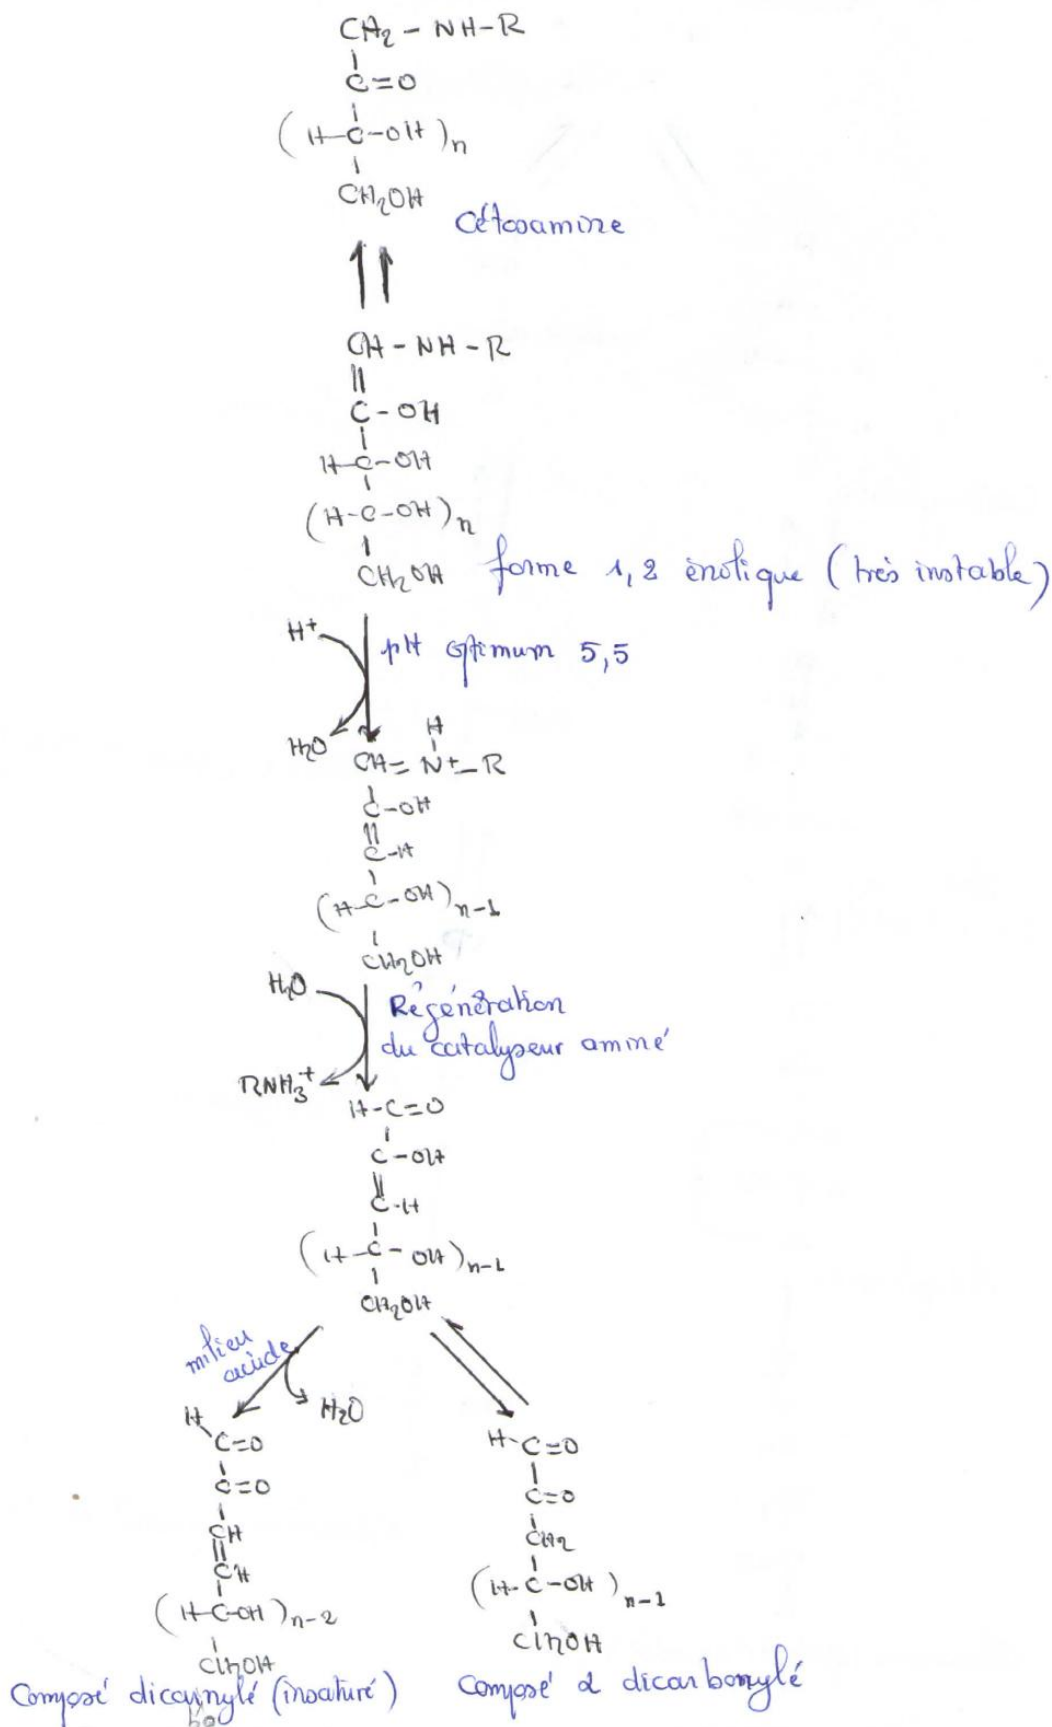 CH2 - NH-R
C=O
(H-C-OH)n
CH2OH
Cétosamine
CH - NH - R
C - OH
H-C-OH
(H-C-OH)n
CH2OH
forme 1,2 énolique (très instable)
H+
pH optimum 5,5
H2O
H
CH= N+-R
C-OH
C-H
(H-C-OH)n-1
CH2OH
H2O
Régénération
du catalyseur aminé
RNH3+
H-C=O
C-OH
C-H
(H-C-OH)n-1
CH2OH
milieu
acide
H2O
H
C=O
C=O
CH
CH
(H-C-OH)n-2
CH2OH
Composé dicarbonylé (insaturé)
H-C=O
C=O
CH2
(H-C-OH)n-1
CH2OH
Composé α dicarbonylé